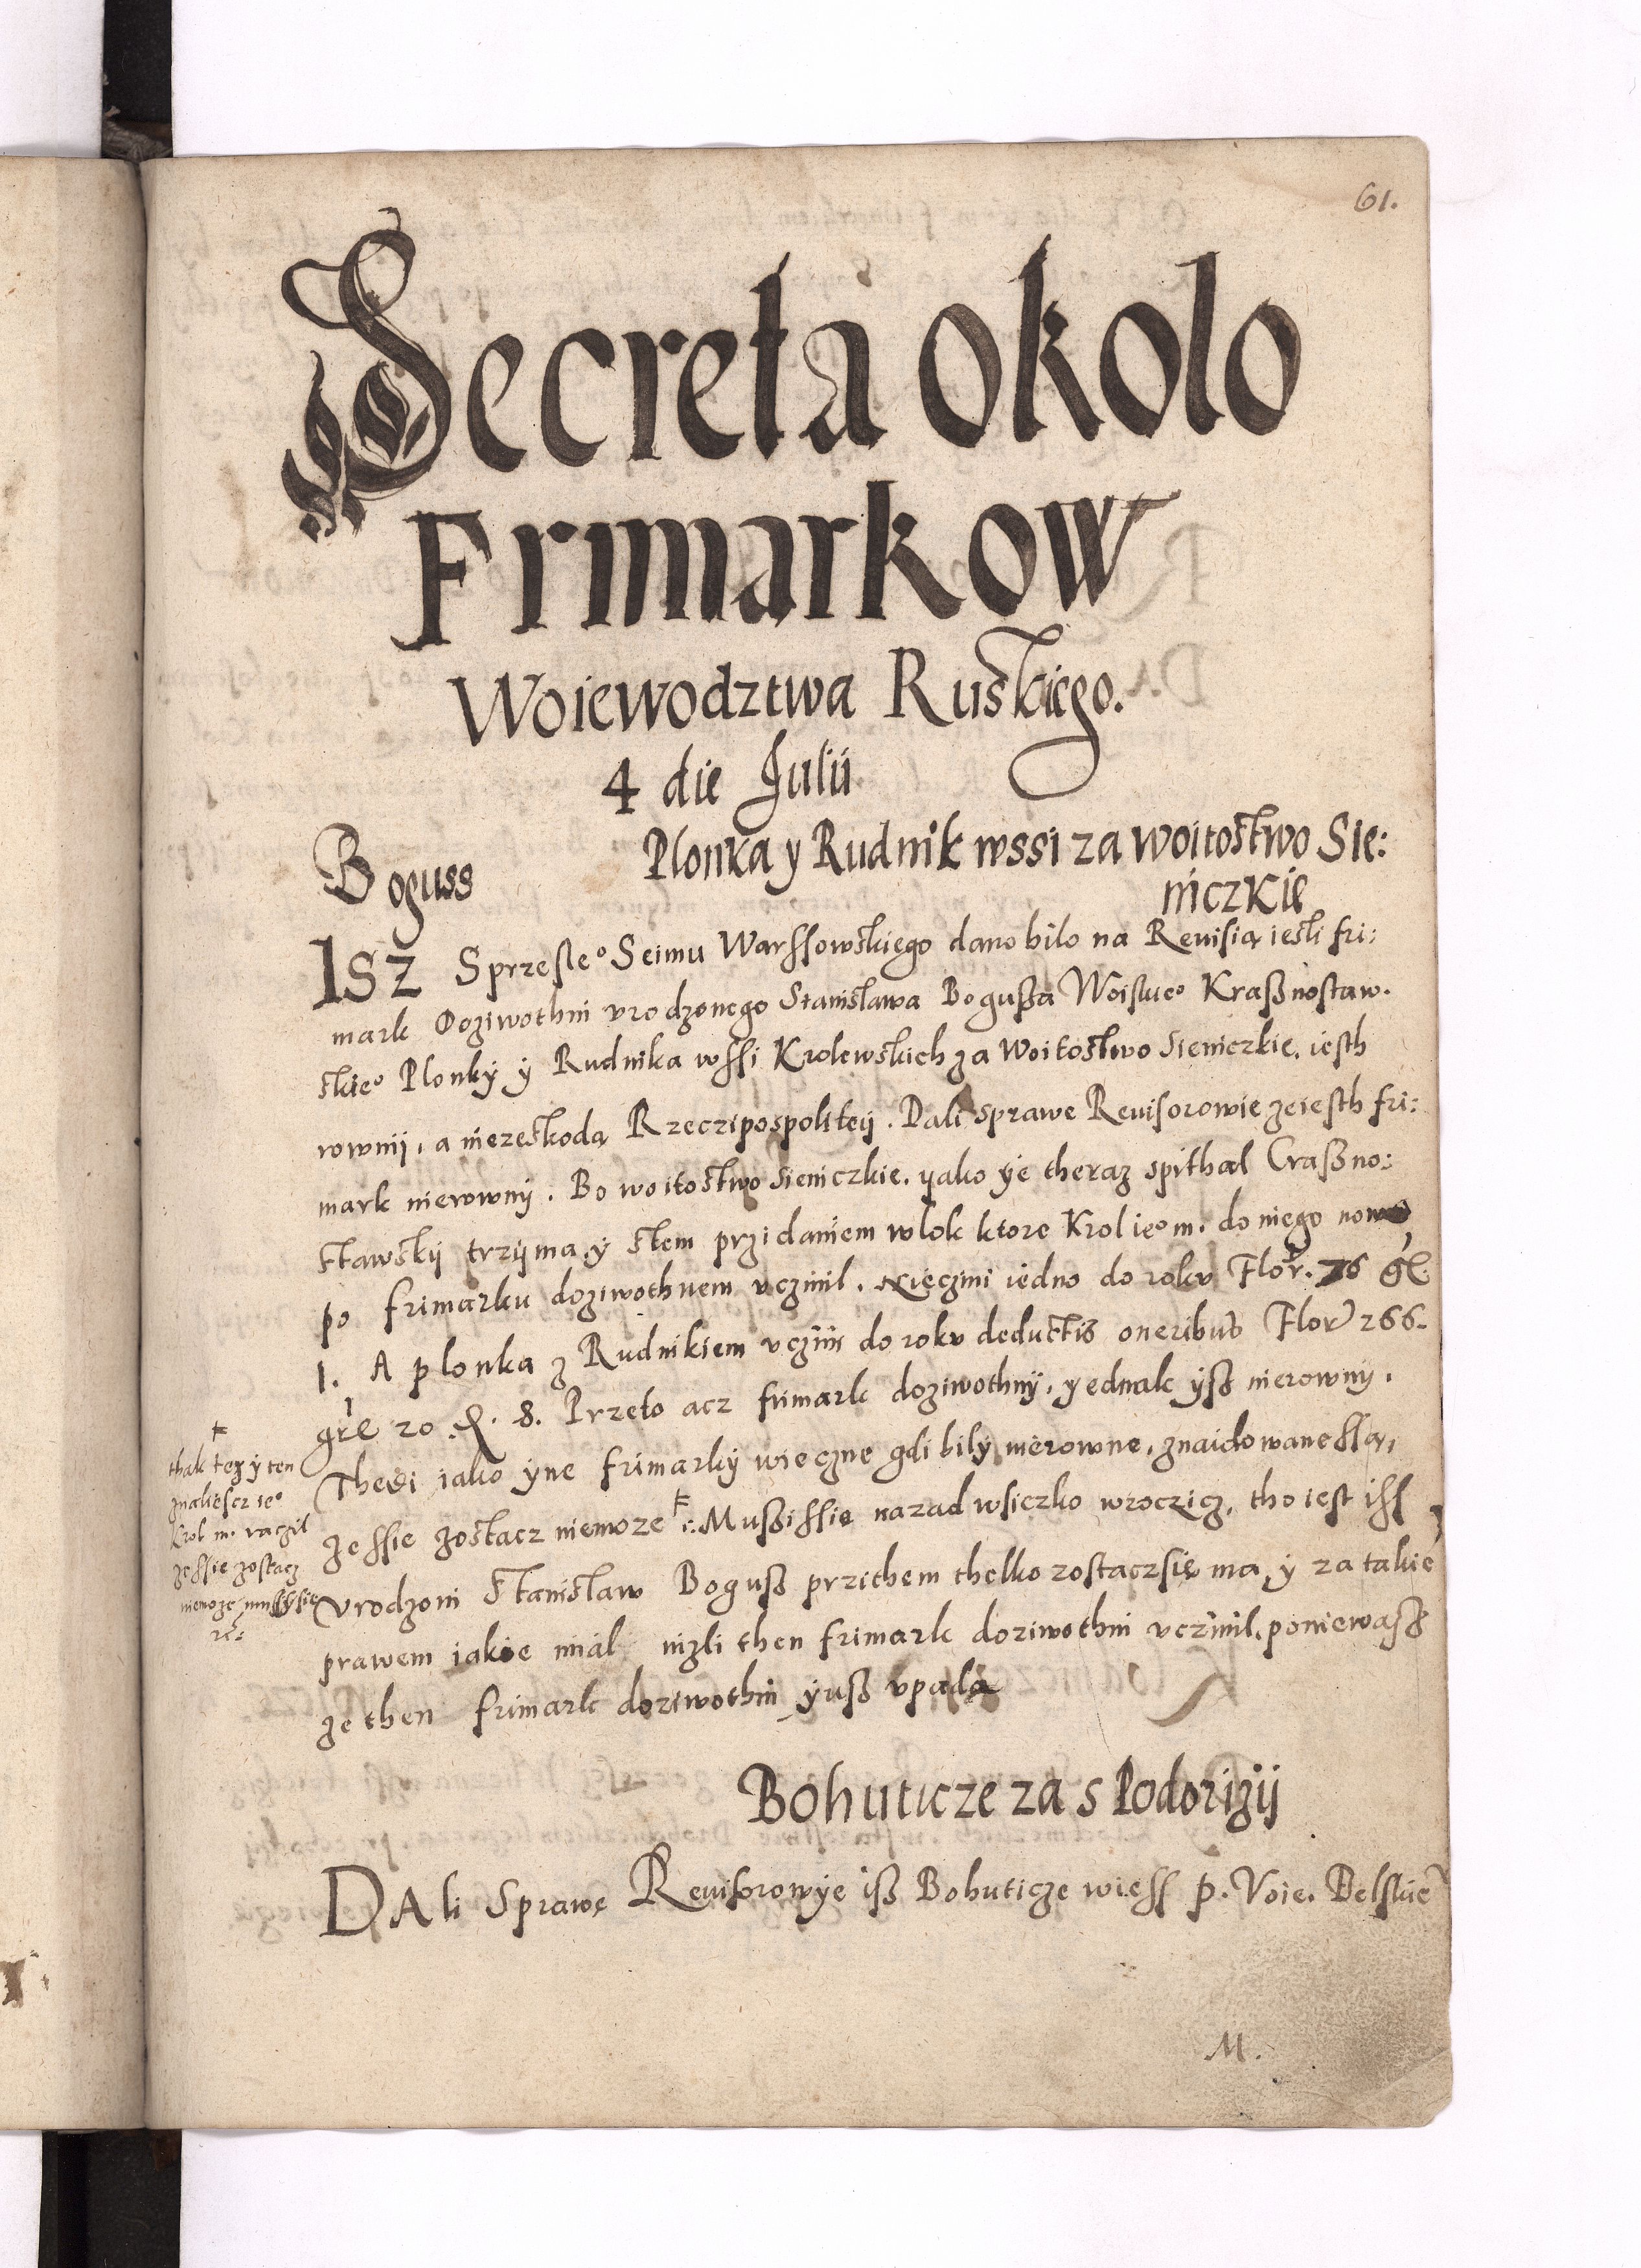 61.
Decreta okolo
Frimarkow
Woiewodztwa Ruskiego.
4 die Julii
Boguss
Plonka y Rudnik wssi za woitostwo Sie:
niczkie
Isz Sprzeßłe° Seimu Warssowskiego dano bilo na Reuisią iesli fri:
mark Doziwothni vrodzonego Stanisława Bogußa Woiskie° Kraßnostaw.
skie° Plonky ÿ Rudnika wssi Krolewskich za Woitostwo Sieniczkie, iesth
rownij, a niezeskodą Rzeczipospolitej. Dali sprawe Reuisorowie zeiesth fri:
mark nierownÿ. Bo woitostwo Sieniczkie, yako ÿe theraz spithal Craßno:
stawskij trzijma, ÿ stem przidaniem wlok ktore Krol ie° m. do niego nowo
po frimarku doziwothnem vczinil. nieczini iedno do roku Flor. 76 gł
1. A plonka z Rudnikiem vczini do roku deductis oneribus Flor 266.
grł 20 . 8. Przeto acz frimark doziwothnÿ, yednak ÿß nierownÿ.
Thedi iako ÿne frimarkÿ wieczne gdi bilÿ nierowne, znaidowane ssą,
ze ssie zostacz niemoze Mußi ssie nazad wsiczko wroczicz, tho iest iss
vrodzoni Stanislaw Boguß przithem thelko zostaczsię ma, ÿ za takie
prawem iakie mial nizli then frimark doziwothni vczinil, poniewaß
ze then frimark doziwothni ÿuß vpada
thak tez ÿ ten
znaliescz ie°
Krol m. raczil
ze ssie zostacz
niemoze mussÿsie
rc:
Bohuticze za s Podorizij
DAli Sprawę Reuisorowÿe iß Bohuticze wiess p. Voie. Belskie
M.